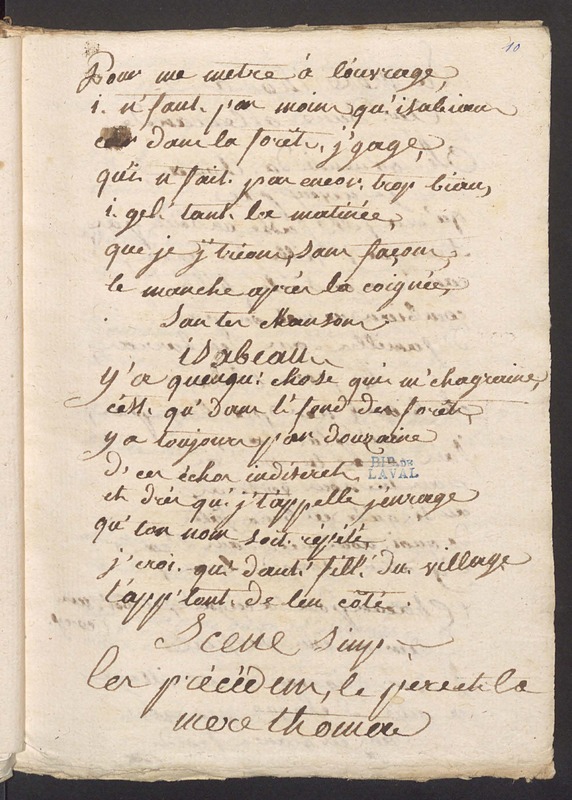 10
Pour me metre à l'ouvrage,
i. n'faut pas moins qu'isabiau
car dans la forêt, j'gage,
qu'i n'fait pas encor trop biau,
i gel' tant la matinée,
que je j'trions, sans façons,
le manche après la coignée,
Sans tes chansons.
isabeau
y'a quenqu'chose qui m'chagraine,
c'est qu'dans l'fond des forêts
y a toujours par douzaine
d'ces échos indiscrets,
et drès qu'j't'appelle j'enrage
qu'ton nom soit répété
j'crois qu'd'aut' fill' du village
t'app'lont de leu côté.
BIB. DE
LAVAL
Scene
les précédens, le pere et la
mere thomas